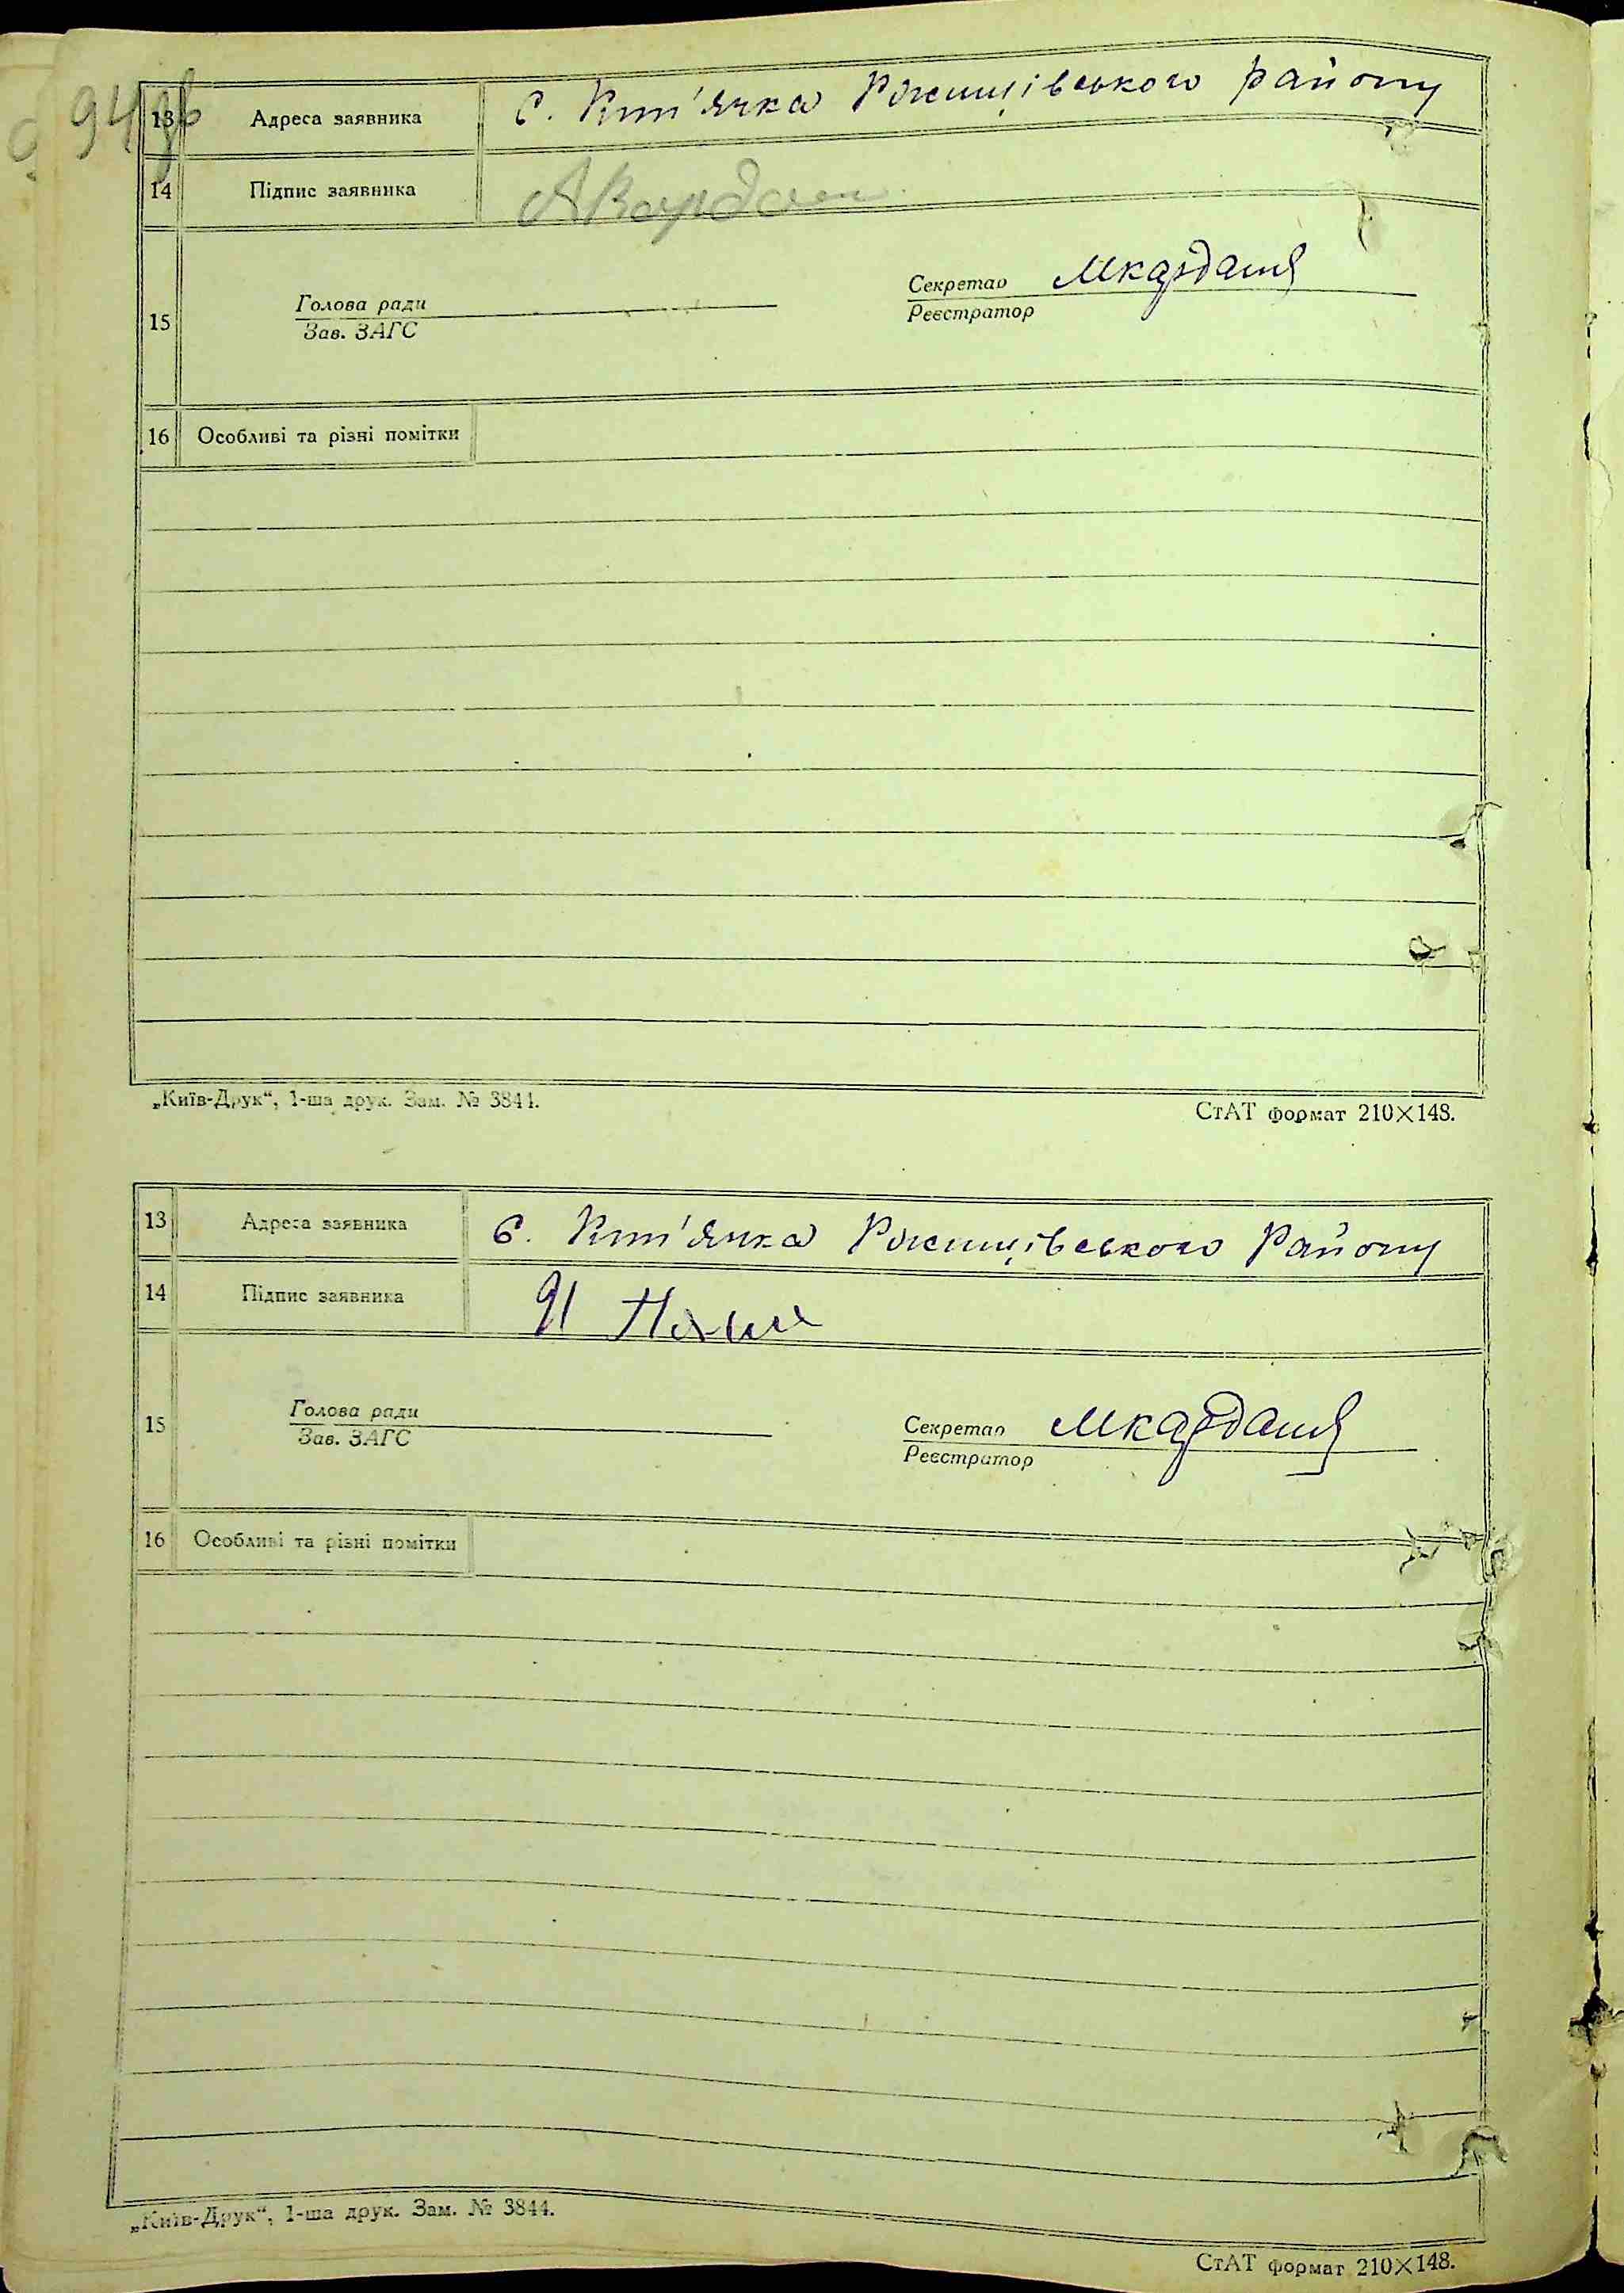 94зв
13 Адреса заявника с. Кип'ячка Рокинцівського району
14 Підпис заявника
15 Голова ради Секретар МКардаш
Зав. ЗАГС Реєстратор
16 Особливі та різні помітки
„Київ-Друк“, 1-ша друк. Зам. № 3844. СтАТ формат 210×148.
13 Адреса заявника с. Кип'ячка Району
14 Підпис заявника
15 Голова ради Секретар МКардаш
Зав. ЗАГС Реєстратор
16 Особливі та різні помітки
„Київ-Друк“, 1-ша друк. Зам. № 3844.
СтАТ формат 210×148.